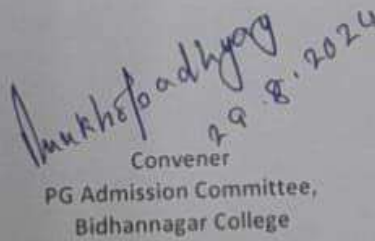 Mukhopadhyay
29.8.2024
Convener
PG Admission Committee,
Bidhannagar College